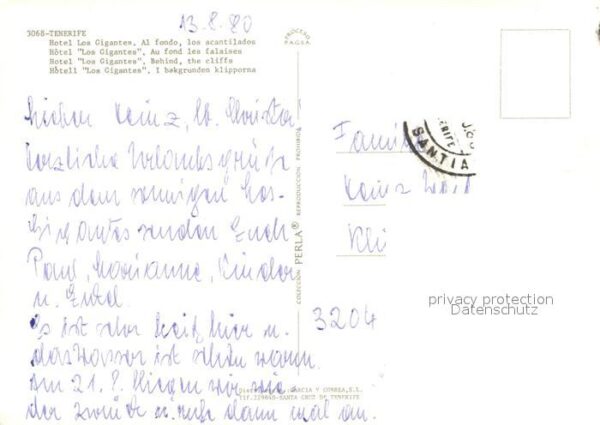 13.8.80
5068-TENERIFE
Hotel Los Gigantes, Al fondo, los acantilados
Hôtel "Los Gigantes", Au fond les falaises
Hotel "Los Gigantes", Behind, the cliffs
Hotell "Los Gigantes", I bakgrunden klipporna
PROCERO
PAGSA
Lieber Heinz, lb. Christa
herzliche Urlaubsgrüße
aus dem sonnigen Los-
Gigantes senden Euch
Paul, Marianne, Kinder
u.
Es ist sehr heiß hier u.
das Wasser ist schön warm.
Am 21.8. fliegen wir wie-
der zurück u. rufe dann mal an.
COLECCION PERLA® REPRODUCCION PROHIBIDA
SANTIA
Familie
Heinz
3204
privacy protection
Datenschutz
GARCIA Y CORREA, S.L.
Tlf. 229840-SANTA CRUZ DE TENERIFE